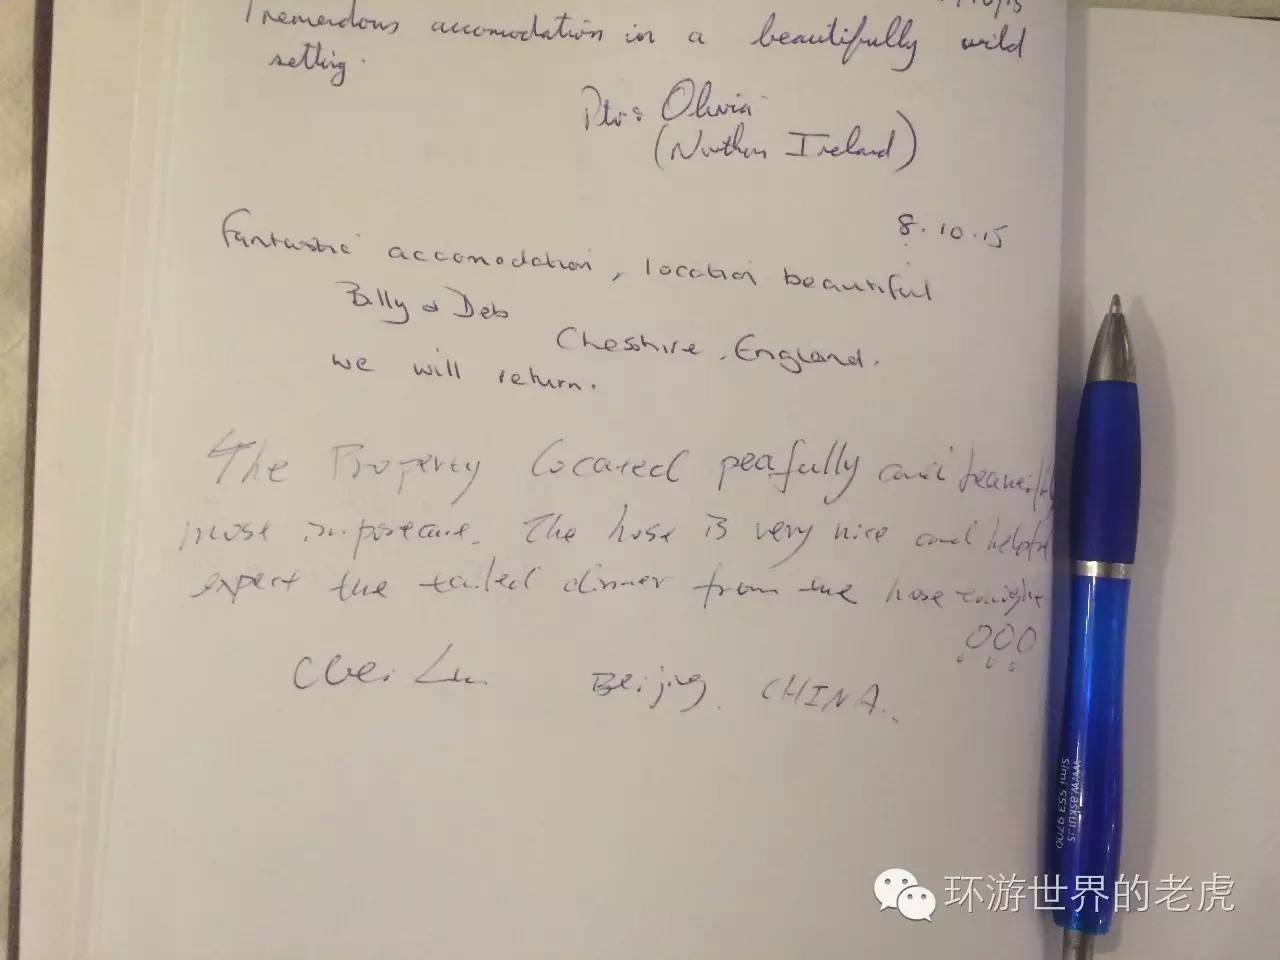 Tremendous accomodation in a beautifully wild
setting.
Olivia
(Northern Ireland)
8.10.15
Fantastic accomodation, location beautiful
Billy & Deb
Chesshire, England.
we will return.
The Property located peafully and
most importane. The hose is very nice and
expect the tailed dinner from the hose
Beijing, CHINA.
www.askur.is
simi 553 9700
环游世界的老虎